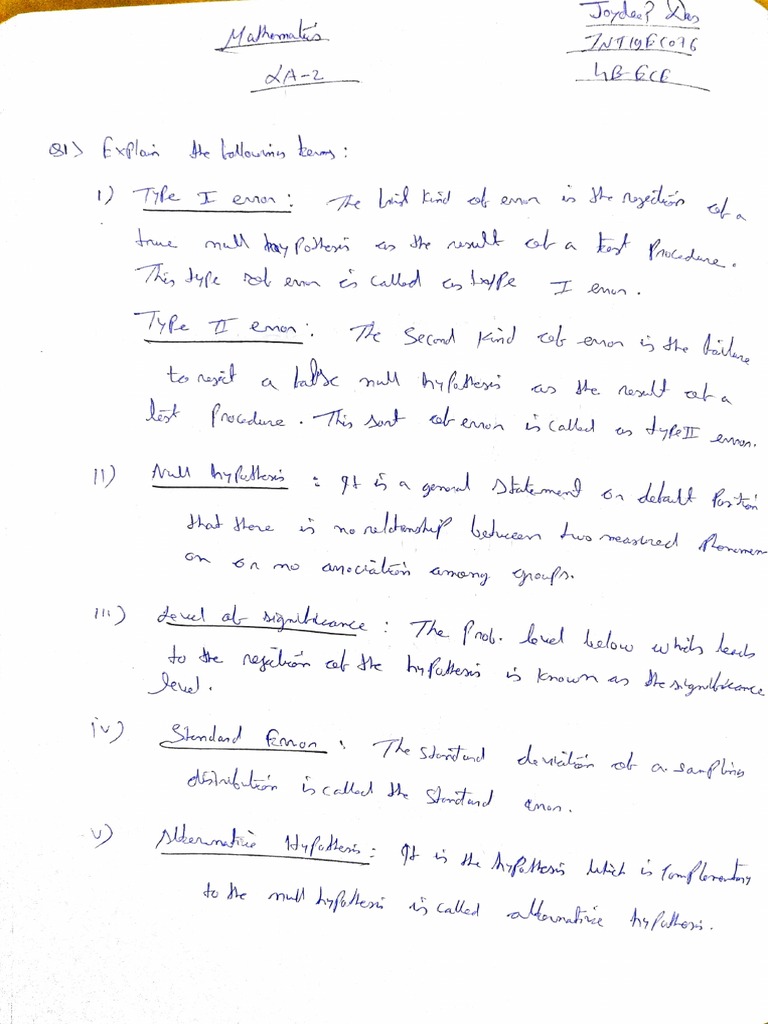 Joydeep Das
Mathematics
1NT19EC076
LA-2
4B-ECE
Q1) Explain the following terms:
i) Type I error: The first kind of error is the rejection of a
true null hypothesis as the result of a test Procedure.
This type of error is called as type I error.
Type II error: The second kind of error is the failure
to reject a false null hypothesis as the result of a
test Procedure. This sort of error is called as type II error.
ii) Null hypothesis : It is a general statement or default position
that there is no reltonship between two measured Phenomen
on or no association among groups.
iii) Level of significance : The Prob. level below which leads
to the rejection of the hypothesis is known as the significance
level.
iv) Standard Error : The standard deviation of a sampling
distribution is called the standard error.
v) Alternative Hypothesis : It is the hypothesis which is complementary
to the null hypothesis is called alternative hypothesis.